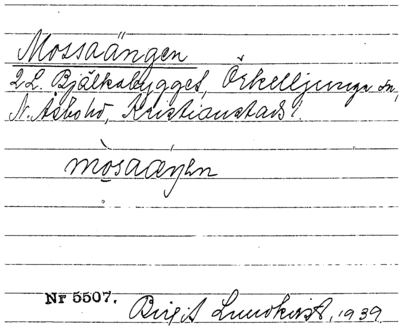 Mossaängen
2 L. Bjälkabygget, Örkelljunga sn,
N. Åsbohd, Kristianstads l.
Nr 5507.
Birgit Lundkvist, 1939